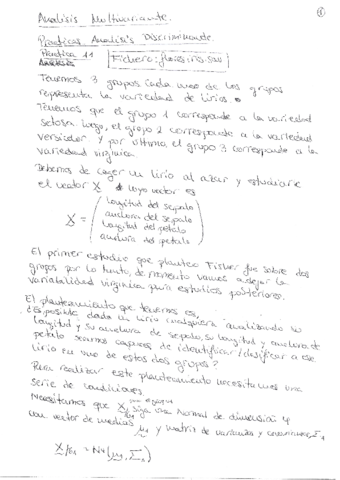 Analisis Multivariante.
Practicas Analisis Discriminante.
Practica 11
Fichero: flores iris.sav
Tenemos 3 grupos cada uno de los grupos
representa la variedad de lirios.
Tenemos que el grupo 1 corresponde a la variedad
setosa. luego, el grupo 2 corresponde a la variedad
versicolor. Y por ultimo, el grupo 3 corresponde a la
variedad virginica
Debemos de coger un lirio al azar y estudiarle
el vector X cuyo vector es
X =
longitud del sepalo
anchura del sepalo
longitud del petalo
anchura del petalo
El primer estudio que planteo Fisher fue sobre dos
grupos por lo tanto, de momento vamos a dejar la
variabilidad virginica para estudios posteriores.
El planteamiento que tenemos es,
¿es posible dada un lirio cualquiera analizando la
longitud y su anchura de sepalo, su longitud y anchura de
petalo seamos capaces de identificar/clasificar a ese
lirio en uno de estos dos grupos?
Para realizar este planteamiento necesitamos una
serie de condiciones.
Necesitamos que X siga una Normal de dimension 4
con vector de medias μ1 y matriz de varianzas y covarianzas, Σ1